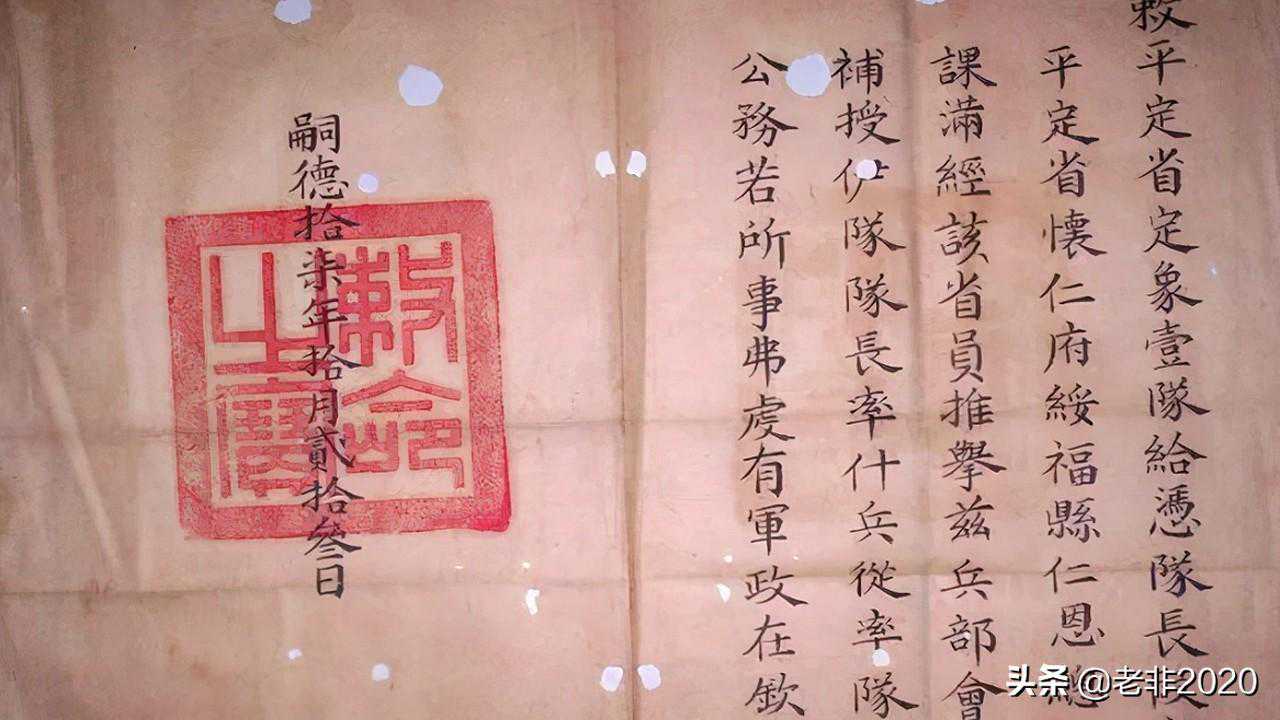 敕平定省定象壹隊給憑隊長
平定省懷仁府綏福縣仁恩總
課滿經該省員推擧茲兵部會
補授伊隊隊長率什兵從率隊
公務若所事弗虔有軍政在欽
嗣德拾柒年拾月貳拾參日
敕命之寶
头条 @老非2020